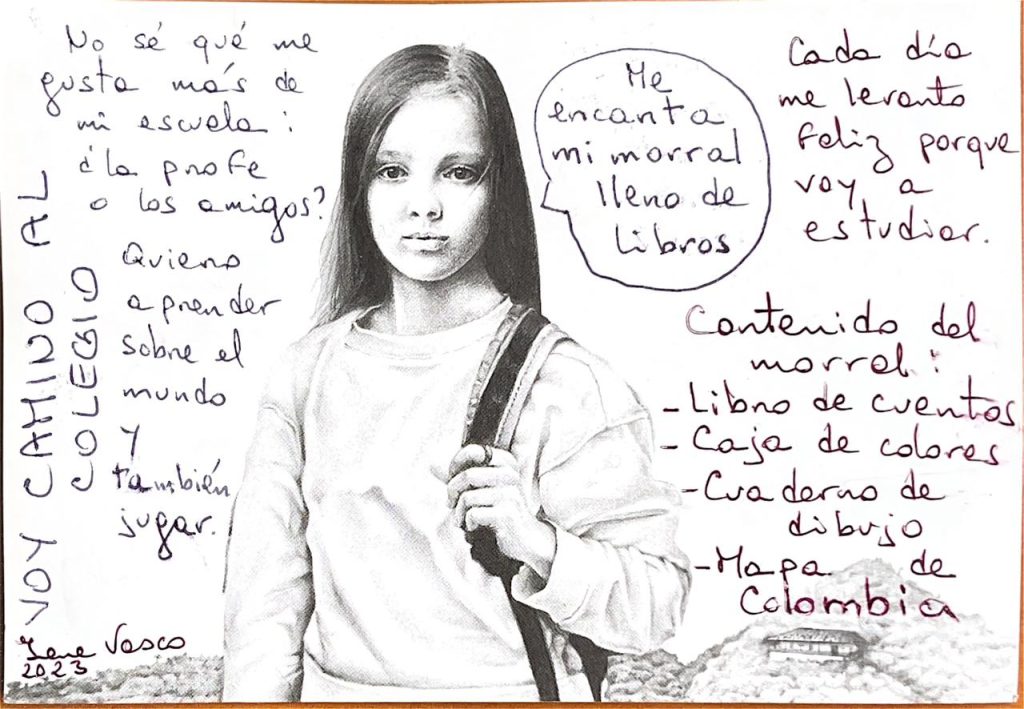 VOY CAMINO AL
COLEGIO
No sé qué me
gusta más de
mi escuela:
¿la profe
o los amigos?
Quiero
aprender
sobre el
mundo
y
también
jugar.
Me
encanta
mi morral
lleno de
libros
Cada día
me levanto
feliz porque
voy a
estudiar.
Contenido del
morral:
- Libro de cuentos
- Caja de colores
- Cuaderno de
dibujo
- Mapa de
Colombia
Irene Vasco
2023